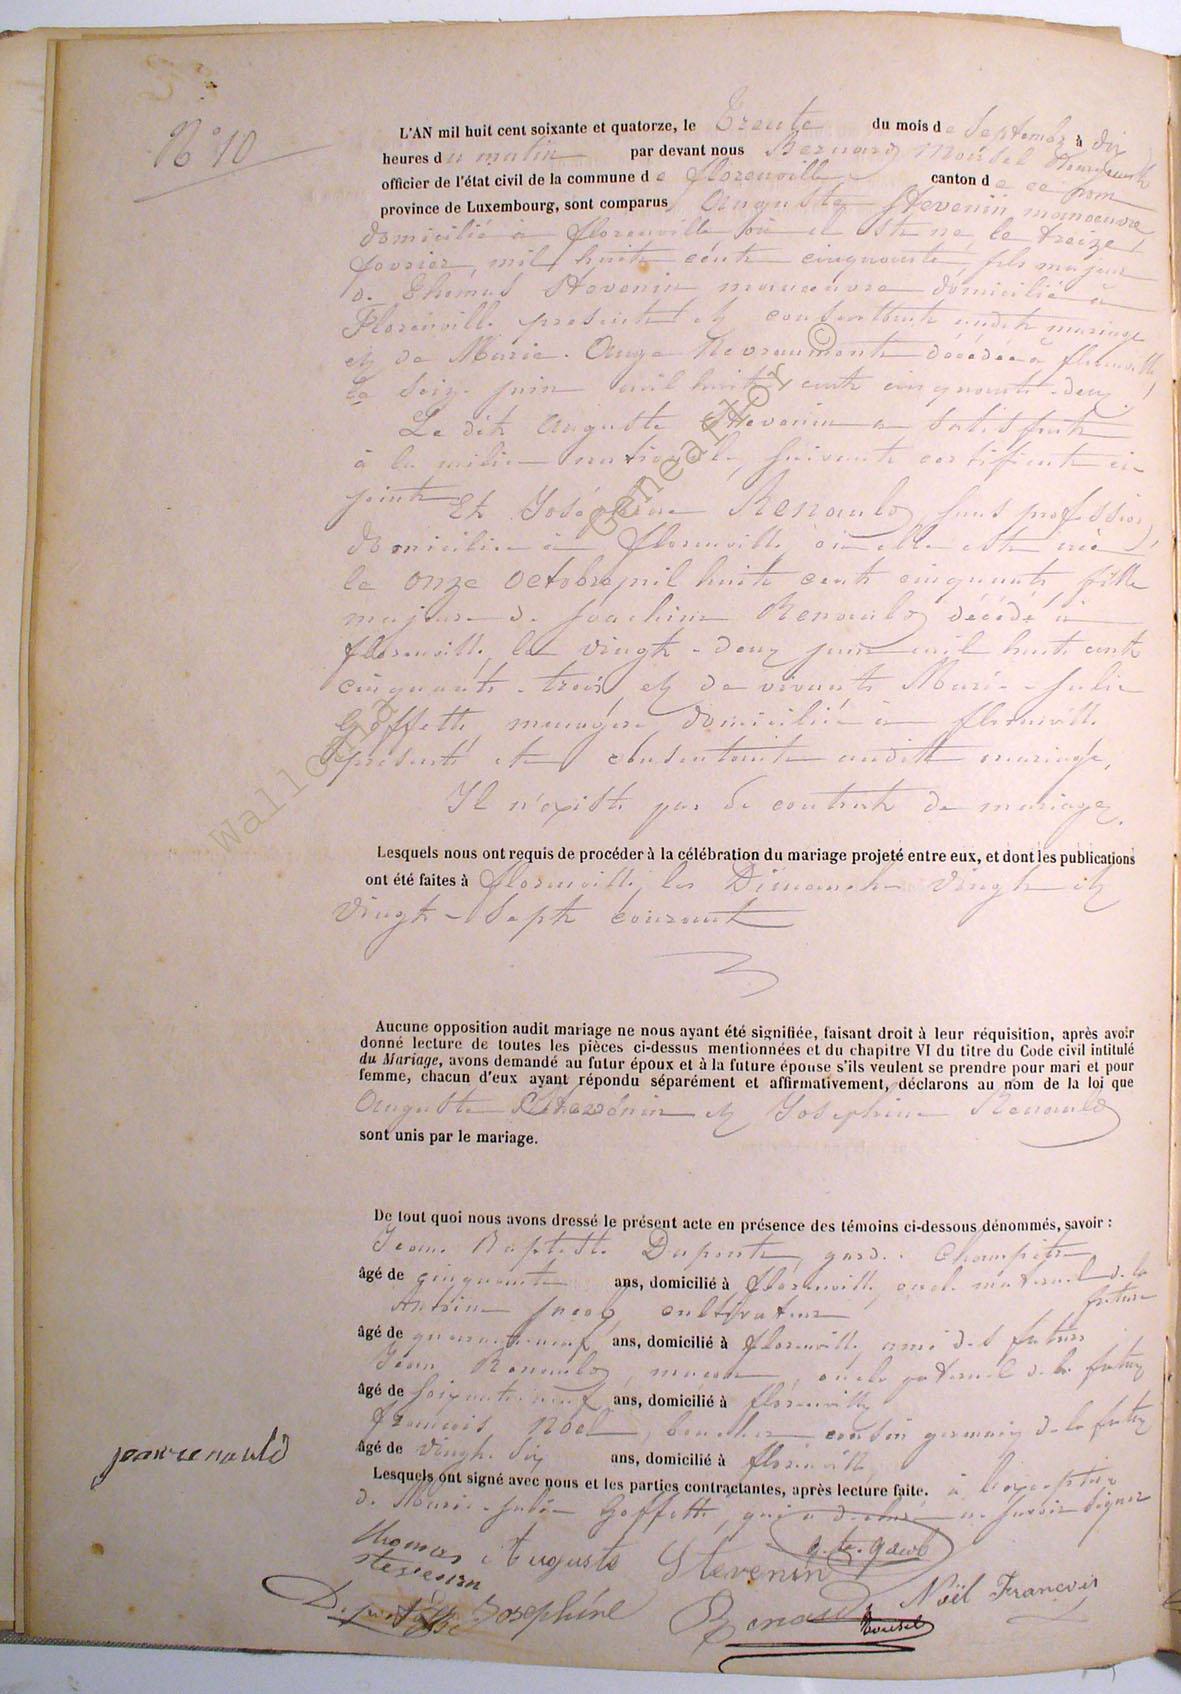 N° 10
L'AN mil huit cent soixante et quatorze, le Trente du mois de Septembre à dix
heures du matin par devant nous Bernard Mousel
officier de l'état civil de la commune de florenville canton de ce nom
province de Luxembourg, sont comparus Auguste Stevenin manœuvre
domicilié à florenville où il est né le treize
fevrier mil huit cent cinquante, fils majeur
de Thomas Stevenin manœuvre domicilié à
Florenville présent et consentant audit mariage
et de Marie-Ange Nevraumont décédée à florenville
le seize juin mil huit cent cinquante-deux.
Le dit Auguste Stevenin a satisfait
à la milice nationale, suivant certificat ci-
joint Et Joséphine Renauld, sans profession,
domiciliée à florenville où elle est née
le onze octobre mil huit cent cinquante fille
majeure de Joachim Renauld décédé à
florenville le vingt-deux juin mil huit cent
cinquante-trois et de vivante Marie-Julie
Goffette, ménagère domiciliée à florenville
présente et consentante audit mariage,
Il n'existe pas de contrat de mariage.
Lesquels nous ont requis de procéder à la célébration du mariage projeté entre eux, et dont les publications
ont été faites à florenville, les Dimanches vingt et
vingt-sept courant
Aucune opposition audit mariage ne nous ayant été signifiée, faisant droit à leur réquisition, après avoir
donné lecture de toutes les pièces ci-dessus mentionnées et du chapitre VI du titre du Code civil intitulé
du Mariage, avons demandé au futur époux et à la future épouse s'ils veulent se prendre pour mari et pour
femme, chacun d'eux ayant répondu séparément et affirmativement, déclarons au nom de la loi que
Auguste Stevenin et Josephine Renauld
sont unis par le mariage.
De tout quoi nous avons dressé le présent acte en présence des témoins ci-dessous dénommés, savoir :
Jean Baptiste Dupont, garde champêtre
âgé de cinquante ans, domicilié à florenville, oncle maternel de la future
Antoine Jacob, cultivateur
âgé de quarante-neuf ans, domicilié à florenville, ami des futurs
Jean Renauld, maçon, oncle paternel de la future
âgé de soixante-neuf ans, domicilié à florenville
François Noël, boucher cousin germain de la future
âgé de vingt-six ans, domicilié à florenville
Lesquels ont signé avec nous et les parties contractantes, après lecture faite. à l'exception
de Marie-Julie Goffette, qui a déclaré ne savoir signer
jean renauld
thomas stevenin
Auguste Stevenin
Noël François
Josephine Renauld
Mousel
wallonia © Genealfor